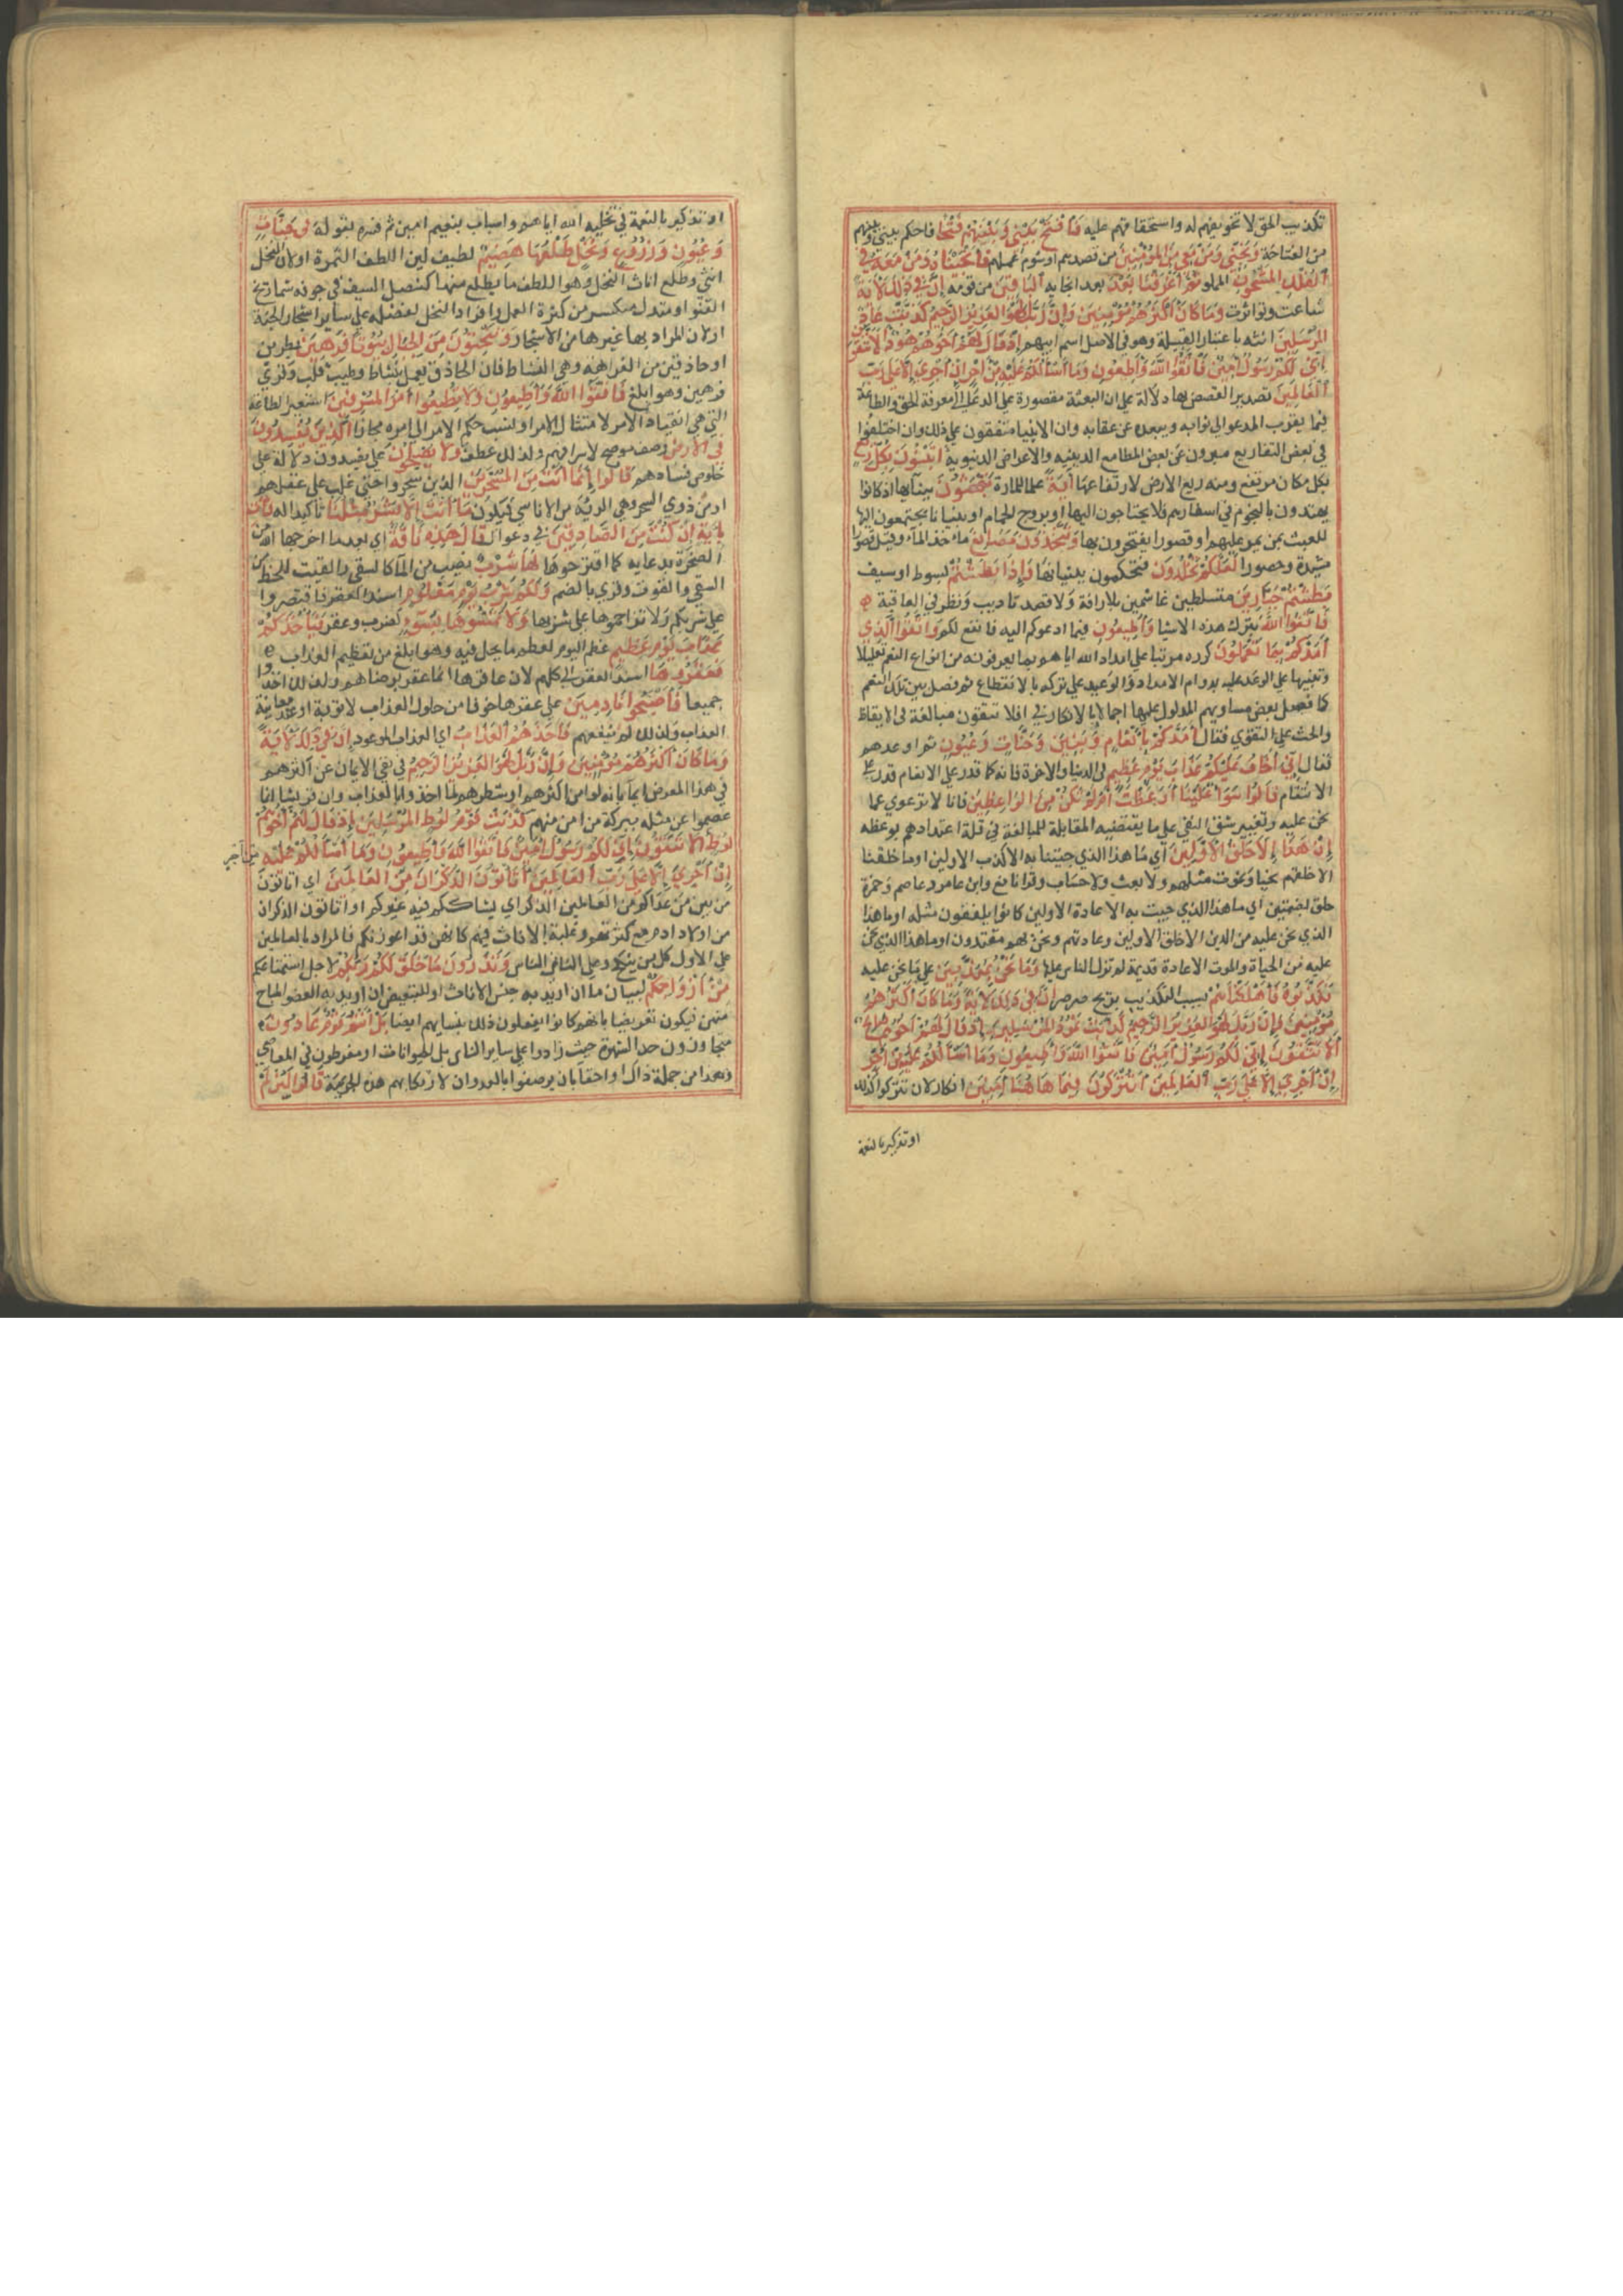 تكذيب الحق لا تخويفهم له واستخفافهم عليه فَافْتَحْ بَيْنِي وَبَيْنَهُمْ فَتْحًا فاحكم بيني وبينهم
من الفتاحة وَنَجِّنِي وَمَنْ مَعِيَ مِنَ الْمُؤْمِنِينَ من قصدهم او شوم عملهم فَأَنْجَيْنَاهُ وَمَنْ مَعَهُ فِي
الْفُلْكِ الْمَشْحُونِ المملو ثُمَّ أَغْرَقْنَا بَعْدُ بعد انجايه الْبَاقِينَ من قومه إِنَّ فِي ذَلِكَ لَآيَةً
شاعت وتواترت وَمَا كَانَ أَكْثَرُهُمْ مُؤْمِنِينَ وَإِنَّ رَبَّكَ لَهُوَ الْعَزِيزُ الرَّحِيمُ كَذَّبَتْ عَادٌ
الْمُرْسَلِينَ انثه باعتبار القبيلة وهو في الاصل اسم ابيهم إِذْ قَالَ لَهُمْ أَخُوهُمْ هُودٌ أَلَا تَتَّقُونَ
إِنِّي لَكُمْ رَسُولٌ أَمِينٌ فَاتَّقُوا اللَّهَ وَأَطِيعُونِ وَمَا أَسْأَلُكُمْ عَلَيْهِ مِنْ أَجْرٍ إِنْ أَجْرِيَ إِلَّا عَلَى رَبِّ
الْعَالَمِينَ تصدير القصص بها دلالة على ان البعثة مقصورة على الدعاء الى معرفة الحق والطاعة
فيما يقرب المدعو الى ثوابه ويبعده عن عقابه وان الانبيا متفقون على ذلك وان اختلفوا
في بعض التفاريع مبرون عن بعض المطامع الدينيه والاعراض الدنيوية أَتَبْنُونَ بِكُلِّ رِيعٍ
بكل مكان مرتفع ومنه ريع الارض لارتفاعها آيَةً علما للمارة تَعْبَثُونَ ببنايها اذ كانوا
يهتدون بالنجوم في اسفارهم فلا يحتاجون اليها او بروج الحمام او بنيانا يجتمعون اليها
للعبث بمن يمر عليهم او قصورا يفتخرون بها وَتَتَّخِذُونَ مَصَانِعَ ماخذ الماء وقيل قصورا
مشيدة وحصونا لَعَلَّكُمْ تَخْلُدُونَ فتحكمون بنيانها وَإِذَا بَطَشْتُمْ بسوط او سيف
بَطَشْتُمْ جَبَّارِينَ متسلطين غاشمين بلا رافة ولا قصد تاديب ونظر في العاقبة
فَاتَّقُوا اللَّهَ بترك هذه الاشيا وَأَطِيعُونِ فيما ادعوكم اليه فانه انفع لكم وَاتَّقُوا الَّذِي
أَمَدَّكُمْ بِمَا تَعْلَمُونَ كرره مرتبا على امداد الله اياهم بما يعرفونه من انواع النعم تعليلا
وتنبيها على الوعد عليه بدوام الامداد والوعيد على تركه بالانقطاع ثم فصل بعض تلك النعم
كما فصل بعض مساويهم المدلول عليها اجمالا بالانكار في افلا تتقون مبالغة في الايقاظ
والحث على التقوى فقال أَمَدَّكُمْ بِأَنْعَامٍ وَبَنِينَ وَجَنَّاتٍ وَعُيُونٍ ثم اوعدهم
فقال إِنِّي أَخَافُ عَلَيْكُمْ عَذَابَ يَوْمٍ عَظِيمٍ في الدنيا والاخرة فانه كما قدر على الانعام قدر على
الانتقام قَالُوا سَوَاءٌ عَلَيْنَا أَوَعَظْتَ أَمْ لَمْ تَكُنْ مِنَ الْوَاعِظِينَ فانا لا نرعوي عما
نحن عليه وتغيير شق النفي على ما يقتضيه المقابلة للمبالغة في قلة اعتدادهم بوعظه
إِنْ هَذَا إِلَّا خَلْقُ الْأَوَّلِينَ اي ما هذا الذي جيتنا به الا كذب الاولين او ما خلقنا
الا خلقهم نحيا ونموت مثلهم ولا بعث ولا حساب وقرا نافع وابن عامر وعاصم وحمزة
خلق بضمتين اي ما هذا الذي جيت به الا عادة الاولين كانوا يلفقون مثله او ما هذا
الذي نحن عليه من الدين الا خلق الاولين وعادتهم ونحن بهم مقتدون او ما هذا الذي نحن
عليه من الحياة والموت الا عادة قديمة لم تزل الناس عليها وَمَا نَحْنُ بِمُعَذَّبِينَ على ما نحن عليه
فَكَذَّبُوهُ فَأَهْلَكْنَاهُمْ بسبب التكذيب بريح صرصر إِنَّ فِي ذَلِكَ لَآيَةً وَمَا كَانَ أَكْثَرُهُمْ
مُؤْمِنِينَ وَإِنَّ رَبَّكَ لَهُوَ الْعَزِيزُ الرَّحِيمُ كَذَّبَتْ ثَمُودُ الْمُرْسَلِينَ إِذْ قَالَ لَهُمْ أَخُوهُمْ صَالِحٌ
أَلَا تَتَّقُونَ إِنِّي لَكُمْ رَسُولٌ أَمِينٌ فَاتَّقُوا اللَّهَ وَأَطِيعُونِ وَمَا أَسْأَلُكُمْ عَلَيْهِ مِنْ أَجْرٍ
إِنْ أَجْرِيَ إِلَّا عَلَى رَبِّ الْعَالَمِينَ أَتُتْرَكُونَ فِيمَا هَاهُنَا آمِنِينَ انكار لان تتركوا كذلك
او تذكير بالنعمة
او تذكير بالنعمة في تخلية الله اياهم واسباب تنعيمهم امنين ثم فسره بقوله فِي جَنَّاتٍ
وَعُيُونٍ وَزُرُوعٍ وَنَخْلٍ طَلْعُهَا هَضِيمٌ لطيف لين اللطف الثمرة او لان النخل
انثى وطلع اناث النخل وهو اللطف ما يطلع منها كنصل السيف في جوفه شماريخ
القنو او متدل منكسر من كثرة الحمل وافراد النخل لفضله على ساير اشجار الجنة
او لان المراد بها غيرها من الاشجار وَتَنْحِتُونَ مِنَ الْجِبَالِ بُيُوتًا فَرِهِينَ بطرين
او حاذقين من الفراهة وهي النشاط فان الحاذق يعمل بنشاط وطيب قلب وقرئ
فرهين وهو ابلغ فَاتَّقُوا اللَّهَ وَأَطِيعُونِ وَلَا تُطِيعُوا أَمْرَ الْمُسْرِفِينَ استعير الطاعة
التي هي انقياد الامر لامتثال الامر او نسب حكم الامر الى امره مجازا الَّذِينَ يُفْسِدُونَ
فِي الْأَرْضِ وصف موضح لاسرافهم ولذلك عطف وَلَا يُصْلِحُونَ على يفسدون دلالة على
خلوص فسادهم قَالُوا إِنَّمَا أَنْتَ مِنَ الْمُسَحَّرِينَ الذين سحروا حتى غلب على عقلهم
او من ذوي السحر وهي الرية من الاناسي فيكون مَا أَنْتَ إِلَّا بَشَرٌ مِثْلُنَا تاكيدا له فَأْتِ
بِآيَةٍ إِنْ كُنْتَ مِنَ الصَّادِقِينَ في دعواك قَالَ هَذِهِ نَاقَةٌ اي بعدما اخرجها الله من
الصخرة بدعايه كما اقترحوها لَهَا شِرْبٌ نصيب من الما كالسقي والقيت للحظ من
السقي والقوت وقرئ بالضم وَلَكُمْ شِرْبُ يَوْمٍ مَعْلُومٍ فاقتصروا
على شربكم ولا تزاحموها على شربها وَلَا تَمَسُّوهَا بِسُوءٍ كضرب وعقر فَيَأْخُذَكُمْ
عَذَابُ يَوْمٍ عَظِيمٍ عظم اليوم لعظم ما يحل فيه وهو ابلغ من تعظيم العذاب
فَعَقَرُوهَا اسند العقر الى كلهم لان عاقرها انما عقر برضاهم ولذلك اخذوا
جميعا فَأَصْبَحُوا نَادِمِينَ على عقرها خوفا من حلول العذاب لا توبة او عند معاينة
العذاب ولذلك لم ينفعهم فَأَخَذَهُمُ الْعَذَابُ اي العذاب الموعود إِنَّ فِي ذَلِكَ لَآيَةً
وَمَا كَانَ أَكْثَرُهُمْ مُؤْمِنِينَ وَإِنَّ رَبَّكَ لَهُوَ الْعَزِيزُ الرَّحِيمُ في نفي الايمان عن اكثرهم
في هذا المعرض ايما بانه لو امن اكثرهم او شطرهم لما اخذوا بالعذاب وان قريشا انما
عصموا عن مثله ببركة من امن منهم كَذَّبَتْ قَوْمُ لُوطٍ الْمُرْسَلِينَ إِذْ قَالَ لَهُمْ أَخُوهُمْ
لُوطٌ أَلَا تَتَّقُونَ إِنِّي لَكُمْ رَسُولٌ أَمِينٌ فَاتَّقُوا اللَّهَ وَأَطِيعُونِ وَمَا أَسْأَلُكُمْ عَلَيْهِ من اجر
إِنْ أَجْرِيَ إِلَّا عَلَى رَبِّ الْعَالَمِينَ أَتَأْتُونَ الذُّكْرَانَ مِنَ الْعَالَمِينَ اي اتاتون
من بين من عداكم من العالمين الذكران لا يشارككم فيه غيركم او اتاتون الذكران
من اولاد ادم مع كثرتهم وغلبة الاناث فيهم كانهن قد اعوزنكم فالمراد بالعالمين
على الاول كل من ينكح وعلى الثاني الناس وَتَذَرُونَ مَا خَلَقَ لَكُمْ رَبُّكُمْ لاجل استمتاعكم
مِنْ أَزْوَاجِكُمْ لبيان ما ان اريد به جنس الاناث او للتبعيض ان اريد به العضو المباح
منهن فيكون تعريضا بانهم كانوا يفعلون ذلك بنسايهم ايضا بَلْ أَنْتُمْ قَوْمٌ عَادُونَ
متجاوزون حد الشهوة حيث زادوا على ساير الناس بل الحيوانات او مفرطون في المعاصي
وهذا من جملة ذاك او احقا بان يوصفوا بالعدوان لارتكابهم هذه الجريمة قَالُوا لَئِنْ لَمْ